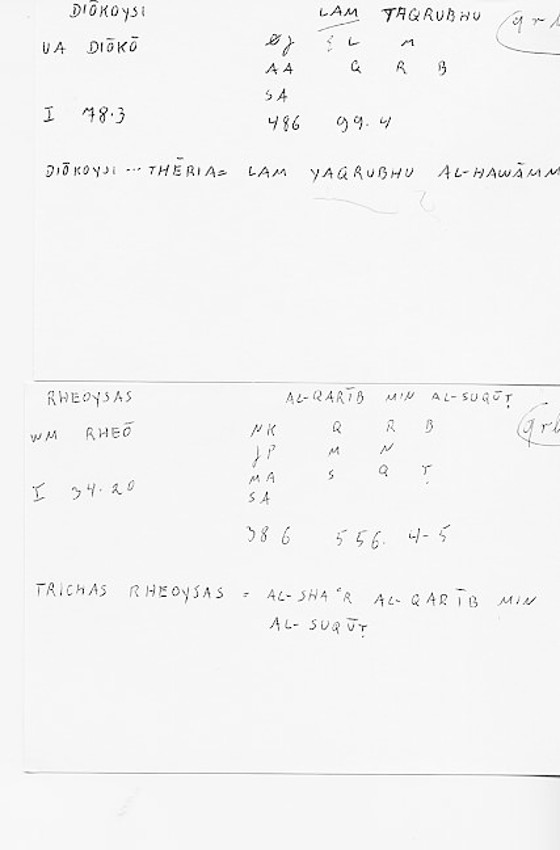 DIŌKOYSI LAM TAQRUBHU
UA DIŌKŌ L M
AA Q R B
SA
I 78.3 486 99.4
DIŌKOYSI ... THĒRIA = LAM YAQRUBHU AL-HAWĀMM
RHEOYSAS AL-QARĪB MIN AL-SUQŪṬ
WM RHEŌ NK Q R B
JP M N
MA S Q Ṭ
I 34.20 SA
386 556. 4-5
TRICHAS RHEOYSAS = AL-SHAʿR AL-QARĪB MIN
AL-SUQŪṬ